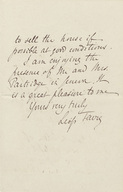 to sell the house if
possible at good conditions.
I am enjoying the
presence of Mr and Mrs
Partridge in Geneva. It
is a great pleasure to me
Yours very truly